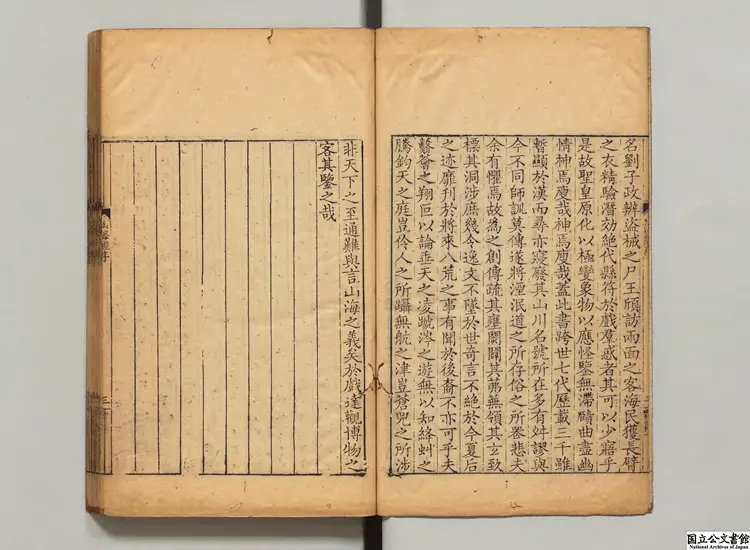 名劉子政辨盜械之尸王頎訪兩面之客海民獲長臂
之衣精驗潛効絕代縣符於戲羣惑者其可以少寤乎
是故聖皇原化以極變象物以應怪鑒無滯賾曲盡幽
情神焉廋哉神焉廋哉蓋此書跨世七代歷載三千雖
暫顯於漢而尋亦寢廢其山川名號所在多有舛謬與
今不同師訓莫傳遂將湮泯道之所存俗之所喪悲夫
余有懼焉故爲之創傳疏其壅閡闢其茀蕪領其玄致
標其洞涉庶幾令逸文不墜於世奇言不絕於今夏后
之迹靡刊於將來八荒之事有聞於後裔不亦可乎夫
蘙薈之翔叵以論垂天之凌蹏涔之遊無以知絳虬之
騰鈞天之庭豈伶人之所躡無航之津豈蒼兕之所涉
非天下之至通難與言山海之義矣於戲達觀博物之
客其鑒之哉
国立公文書館
National Archives of Japan